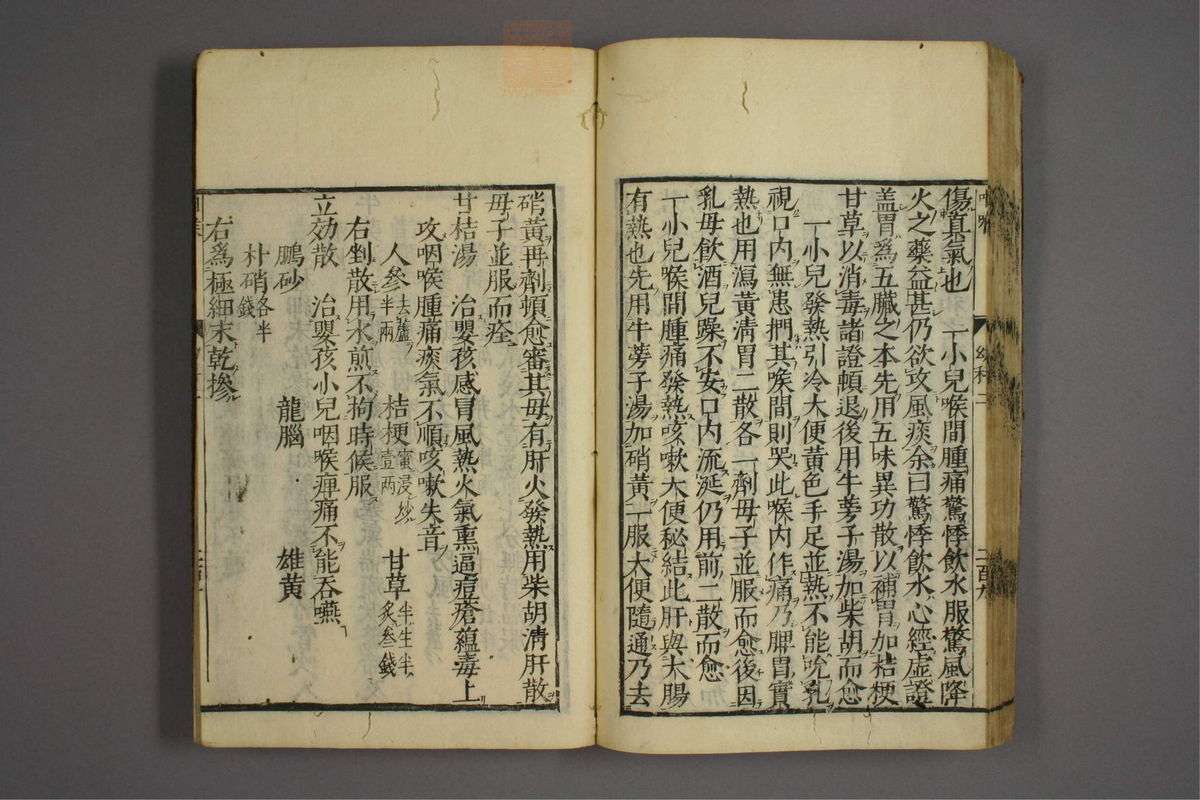 傷真氣也　一小兒喉間腫痛驚悸飲水服驚風降
火之藥益甚仍欲攻風痰余曰驚悸飲水心經虛證
盖胃爲五臟之本先用五味異功散以補胃加桔梗
甘草以消毒諸證頓退後用牛蒡子湯加柴胡而愈
一小兒發熱引冷大便黃色手足並熱不能吮乳
視口内無恙捫其喉間則哭此喉内作痛乃脾胃實
熱也用瀉黃清胃二散各一劑母子並服而愈後因
乳母飲酒兒躁不安口内流涎仍用前二散而愈
一小兒喉間腫痛發熱咳嗽大便秘結此肝與大腸
有熱也先用牛蒡子湯加硝黃一服大便隨通乃去
幼科二
二百九
硝黃再劑頓愈審其母有肝火發熱用柴胡清肝散
母子並服而痊
甘桔湯　治嬰孩感冒風熱火氣熏逼痘瘡蘊毒上
攻咽喉腫痛痰氣不順咳嗽失音
人參去蘆半兩　桔梗蜜浸炒壹兩　甘草半生半炙叄錢
右剉散用水煎不拘時候服
立効散　治嬰孩小兒咽喉痺痛不能吞嚥
鵬砂　龍腦　雄黃
朴硝各半錢
右爲極細末乾摻